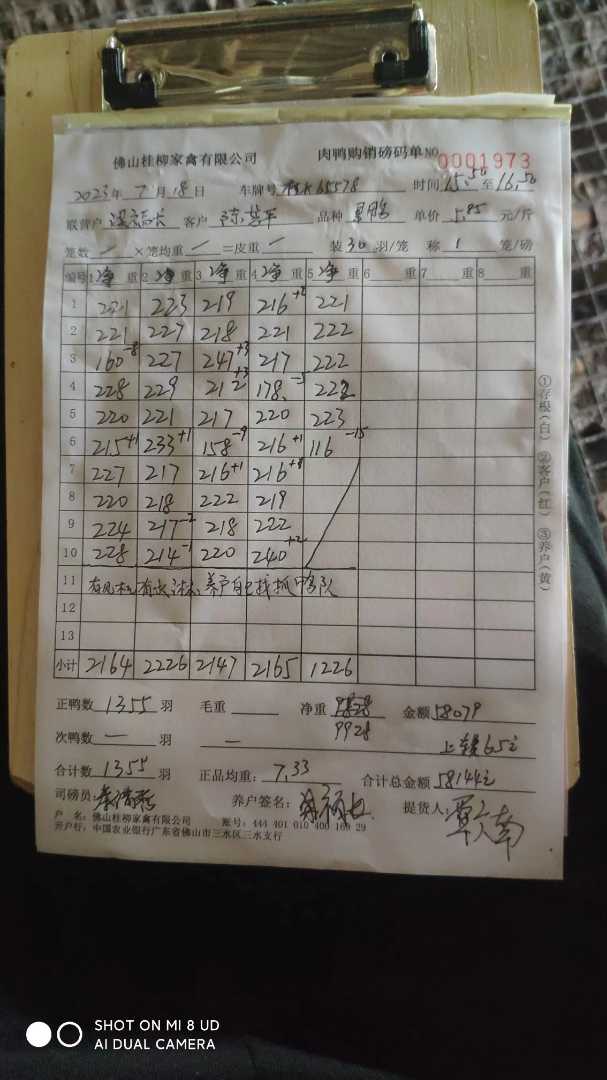 佛山桂柳家禽有限公司 肉鸭购销磅码单 NO 0001973
2023年 7月 18日 车牌号 桂K65578 时间 15.50 至 16.50
联营户 客户 品种 单价 5.85 元/斤
笼数 — ×笼均重 — =皮重 — 装 30 羽/笼 称 1 笼/磅
编号 1 净 重 2 净 重 3 净 重 4 净 重 5 净 重 6 重 7 重 8 重
1 221 223 219 216+2 221
2 221 227 218 221 222
3 160-8 227 247+3 217 222
4 228 229 212+3 178 222
5 220 221 217 220 223
6 215+1 233+1 158-9 216+1 116-15
7 227 217 216+1 216
8 220 218 222 219
9 224 217-2 218 222
10 228 214-1 220 240+2
11 养户自己找抓鸭队
12
13
小计 2164 2226 2147 2165 1226
①存根(白) ②客户(红) ③养户(黄)
正鸭数 1355 羽 毛重 净重 金额 58079
9928
次鸭数 — 羽 — 上车费65元
合计数 1355 羽 正品均重: 7.33 合计总金额 58144元
司磅员: 养户签名: 提货人:
户 名: 佛山桂柳家禽有限公司 账号: 444 401 010 400 169 29
开户行: 中国农业银行广东省佛山市三水区三水支行
SHOT ON MI 8 UD
AI DUAL CAMERA